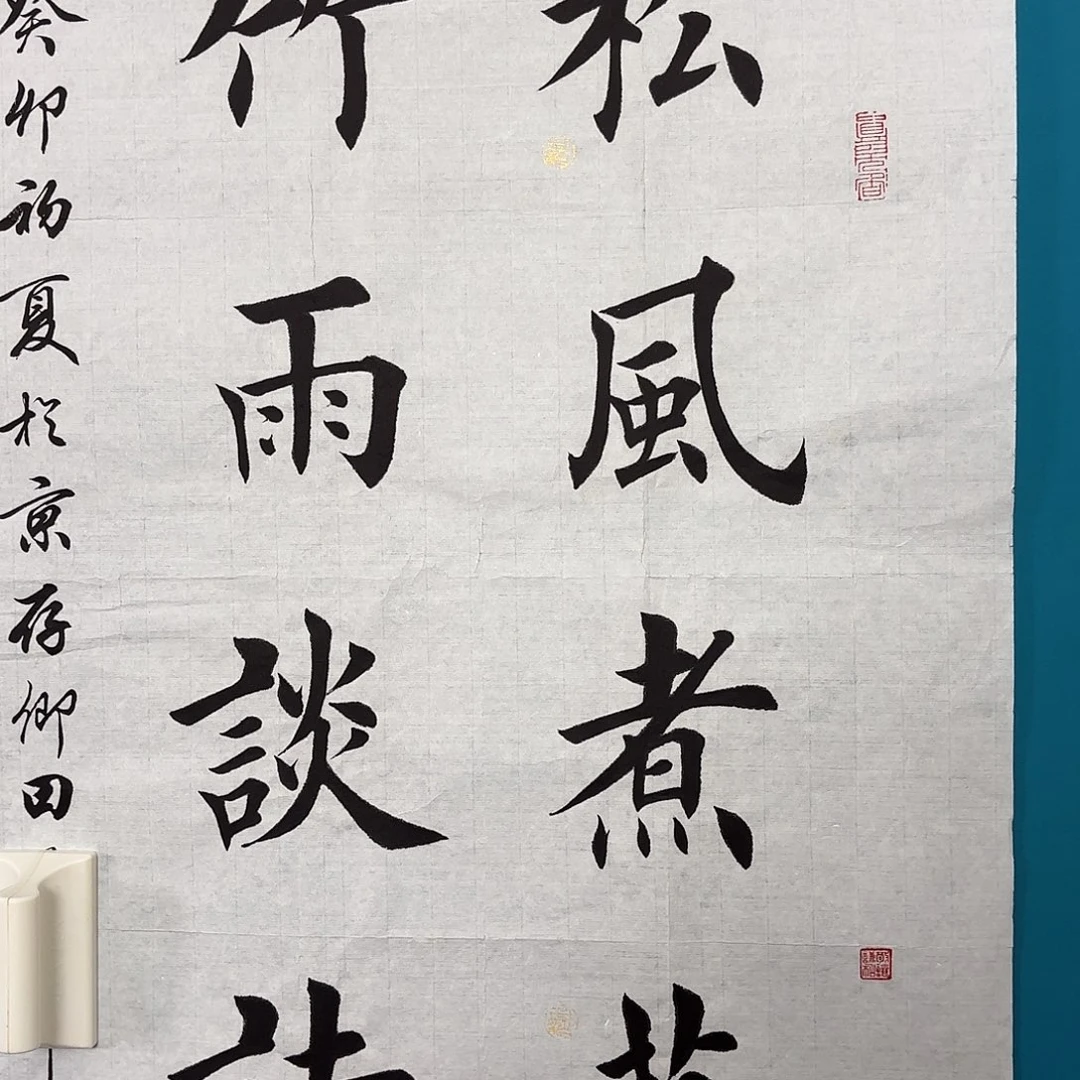 松風煮茗
竹雨談詩
癸卯初夏於京存卿田